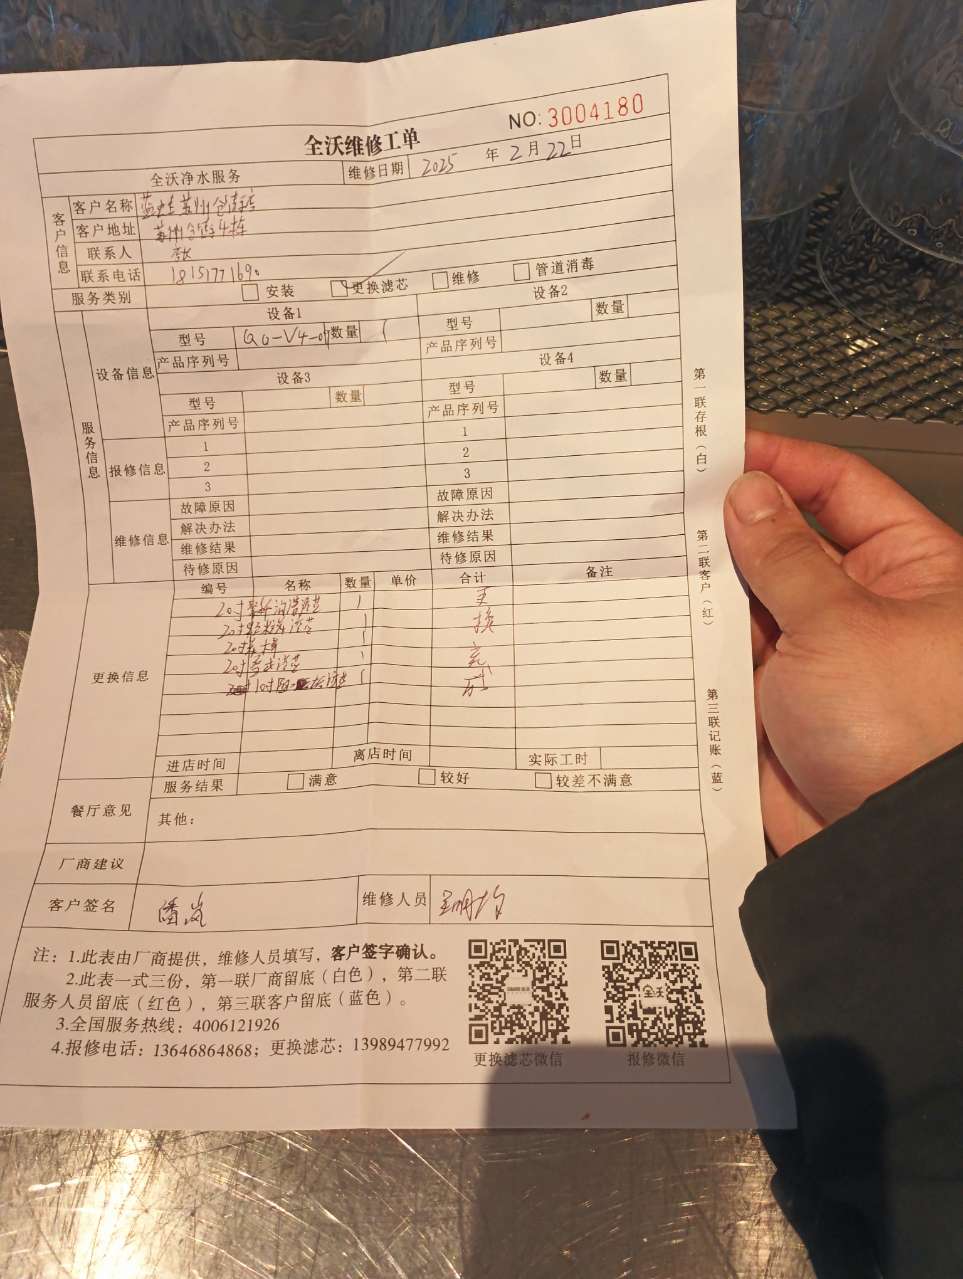 全沃维修工单
NO:3004180
全沃净水服务 维修日期 2025 年 2 月 22 日
客户信息
客户名称 苏州仓街店
客户地址 苏州仓街4栋
联系人
联系电话
服务类别 安装 更换滤芯 维修 管道消毒
服务信息
设备信息
设备1 设备2
型号 数量 1 型号 数量
产品序列号 产品序列号
设备3 设备4
型号 数量 型号 数量
产品序列号 产品序列号
报修信息
1 1
2 2
3 3
维修信息
故障原因 故障原因
解决办法 解决办法
维修结果 维修结果
待修原因 待修原因
更换信息
编号 名称 数量 单价 合计 备注
20寸 滤芯 1 更
20寸 滤芯 1 换
20寸 1 完
20寸 滤芯 1 成
10寸 1
进店时间 离店时间 实际工时
餐厅意见
服务结果 满意 较好 较差不满意
其他:
厂商建议
客户签名 潘岚 维修人员
注：1.此表由厂商提供，维修人员填写，客户签字确认。
2.此表一式三份，第一联厂商留底（白色），第二联
服务人员留底（红色），第三联客户留底（蓝色）。
3.全国服务热线：4006121926
4.报修电话：13646864868；更换滤芯：13989477992
更换滤芯微信
全沃
报修微信
第一联存根（白）
第二联客户（红）
第三联记账（蓝）